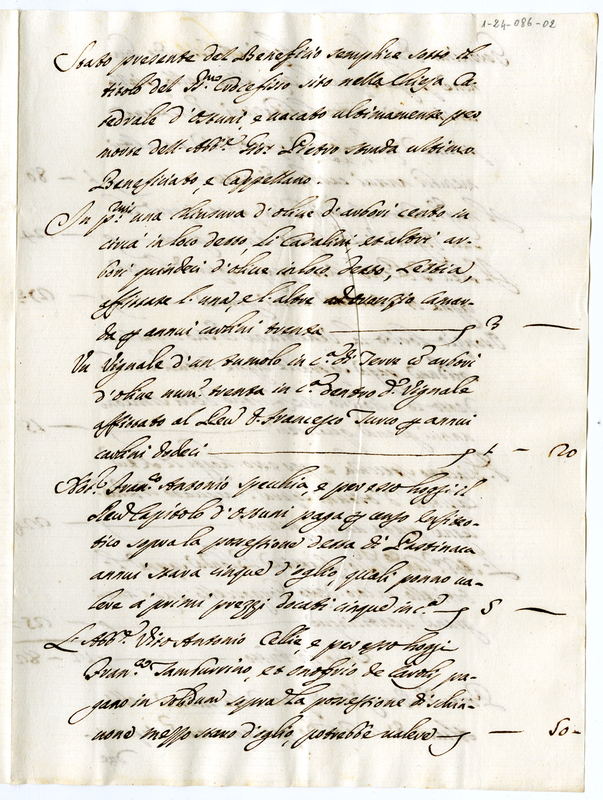 1-24-086-02
Stato presente del Beneficio semplice sotto il
titolo del SS.mo Crocefisso sito nella Chiesa Ca-
tedrale d'Ostuni, e vacato ultimamente per
morte dell'Abb.e Gio: Pietro ultimo
Beneficiato, e Cappellano.
In p.mis una chiusura d'olive d'arbori cento in
circa in loco detto, li Casalini, et altri ar-
bori quindeci d'olive in loco detto, Lestia,
affittate l'una, e l'altre
da p annui carlini trenta — 3 —
Un Vignale d'un tumolo in c.a di Terre co arbori
d'olive num.o trenta in c.a dentro d.o Vignale
affittato al Rev.o D. Francesco Turco p annui
carlini dodeci — 1 — 20
Not.r Fran.co Antonio Specchia, e per esso hoggi il
Rev.do Capitolo d'Ostuni paga p censo enfiteo-
tico sopra la possessione detta di Pastinaca
annui stara cinque d'oglio, quali ponno va-
lere a primi prezzi docati cinque in c.a — 5 —
L'Abb.e Vito Antonio Celie, e per esso hoggi
Fran.co Tamburrino, et Onofrio de Carolis pa-
gano in solidum sopra la possessione di
mezzo staro d'oglio, potrebbe valere — 50 -